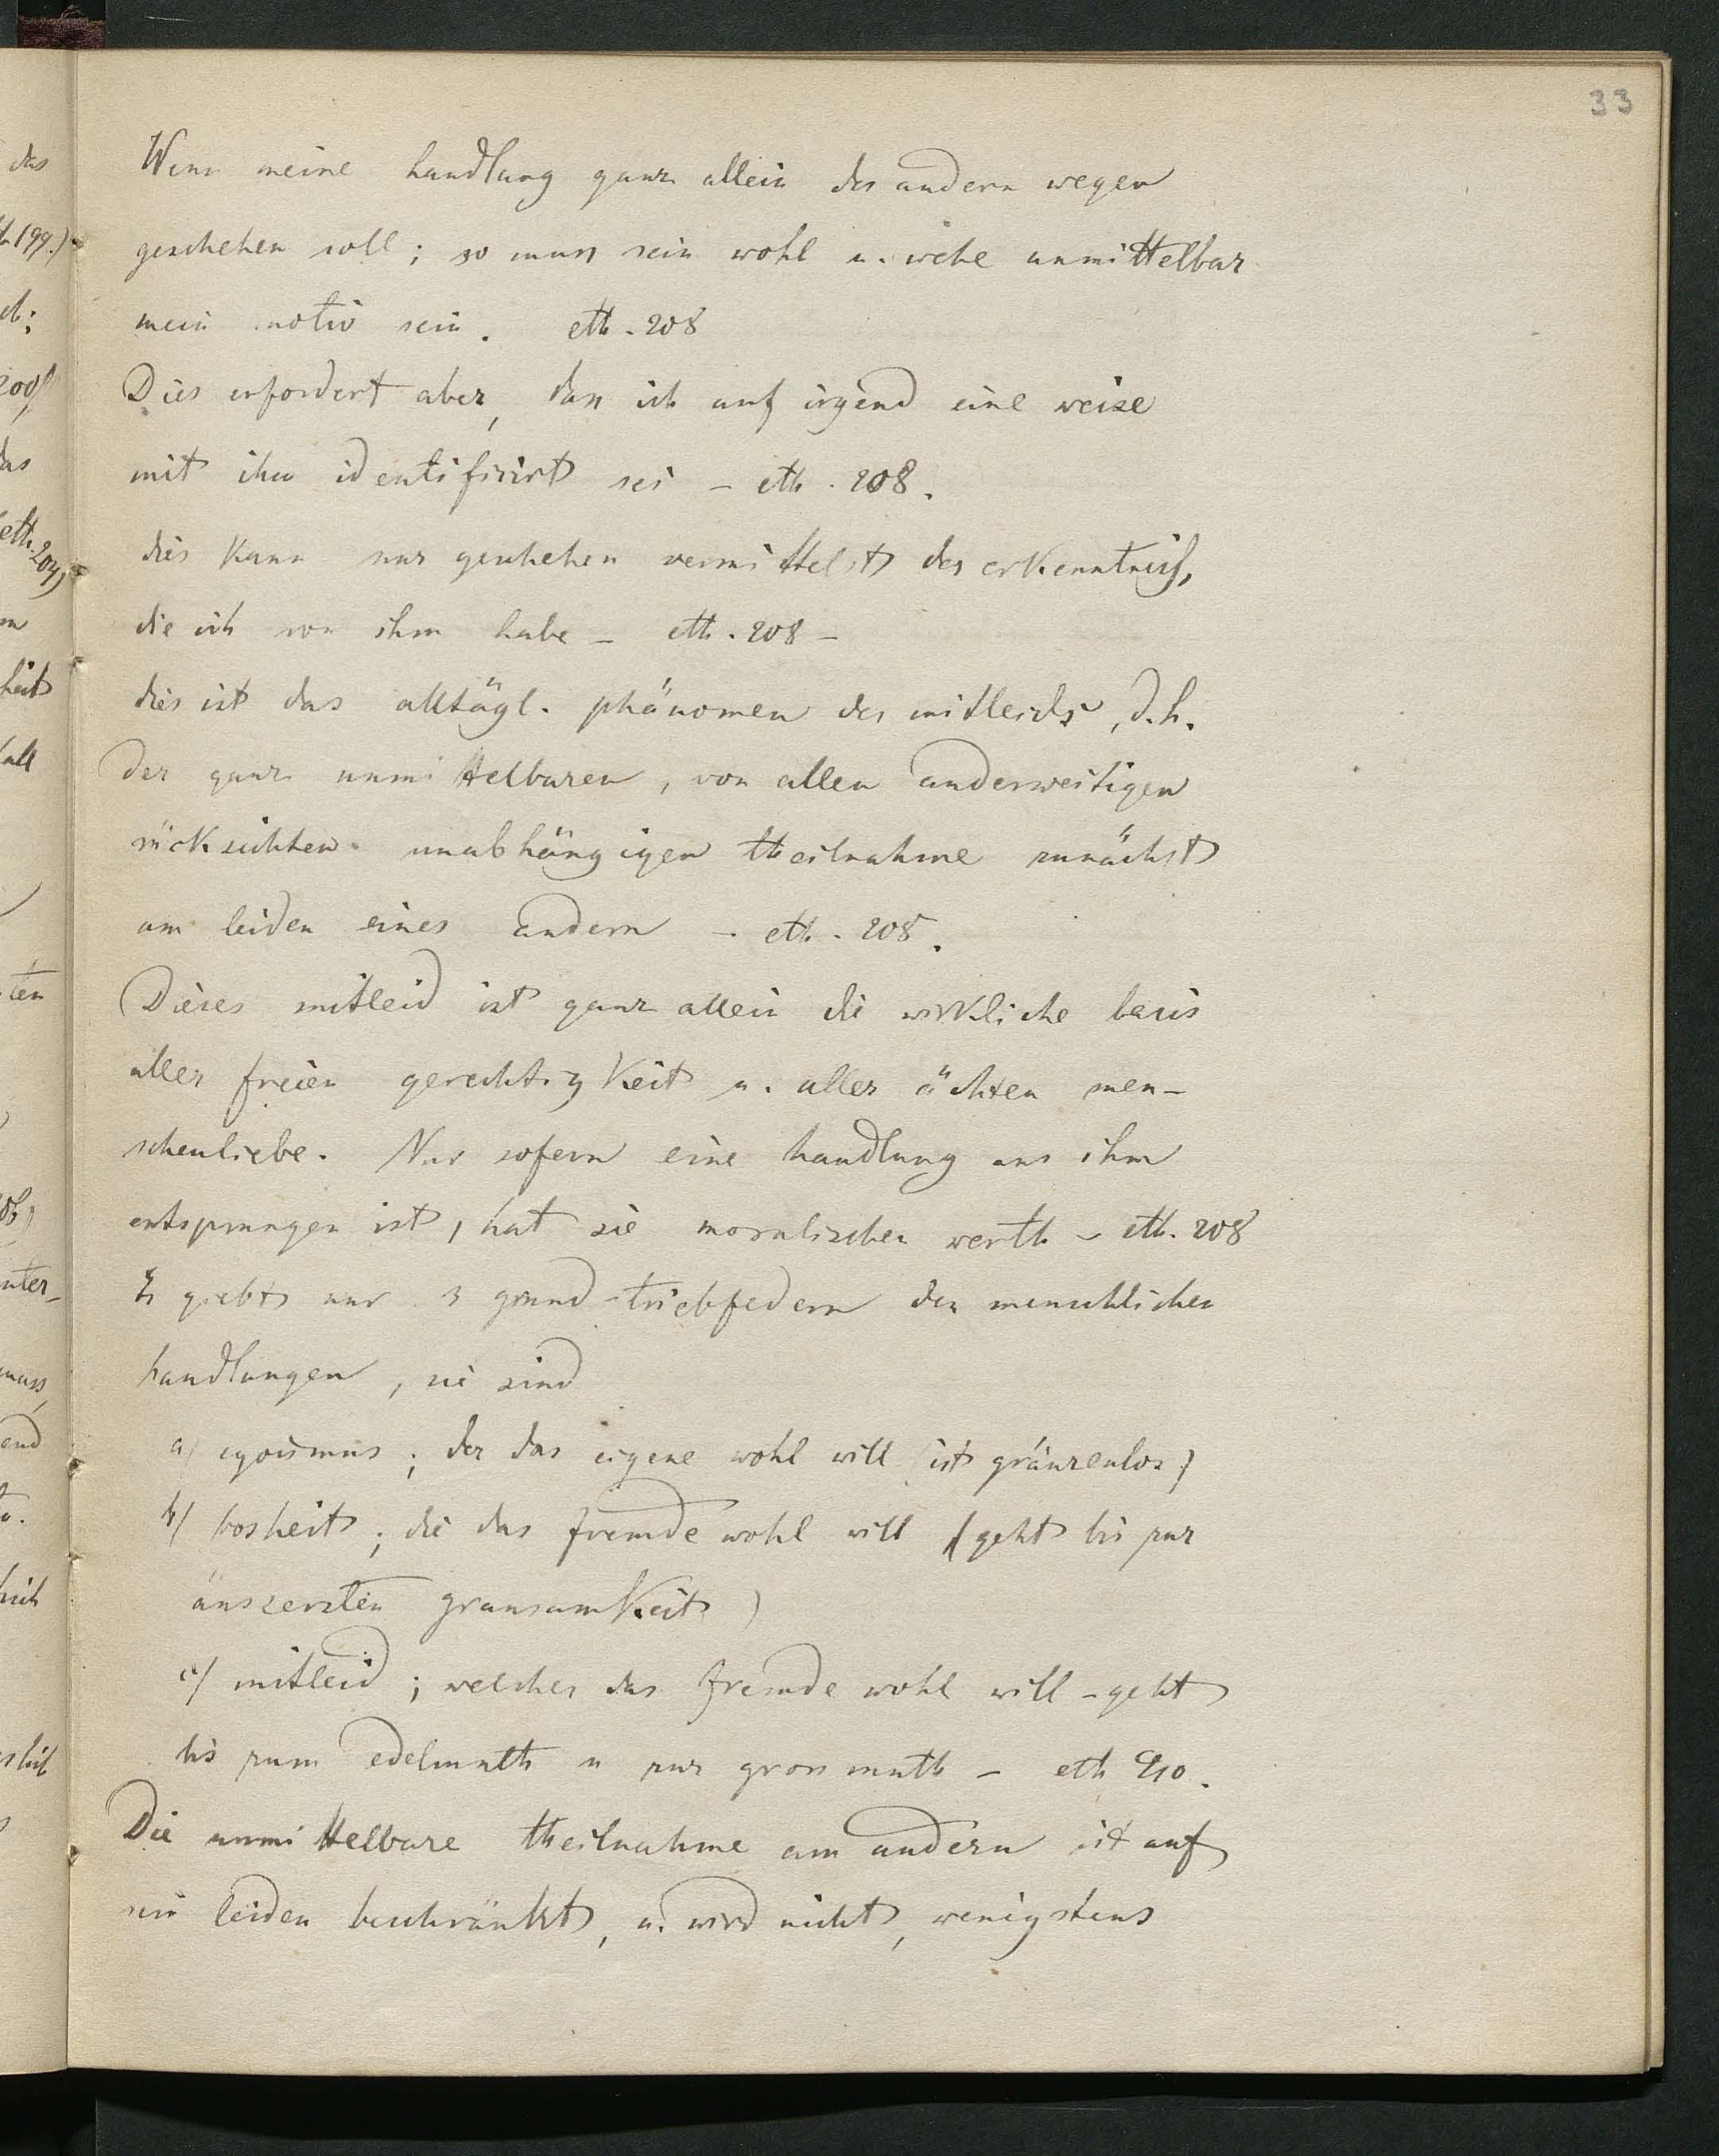 33
Wenn meine handlung ganz allein des andern wegen
geschehen soll; so muss sein wohl u. wehe unmittelbar
mein motiv sein. eth. 208
Dies erfordert aber, dass ich auf irgend eine weise
mit ihm identifizirt sei – eth. 208.
dies kann nur geschehen vermittelst der erkenntniss,
die ich von ihm habe – eth. 208 –
dies ist das alltägl. phänomen des mitleids, d. h.
der ganz unmittelbaren, von allen anderweitigen
rücksichten unabhängigen theilnahme zunächst
am leiden eines andern – eth. 208.
Dieses mitleid ist ganz allein die wirkliche basis
aller freien gerechtigkeit u. aller ächten men-
schenliebe. Nur sofern eine handlung aus ihm
entsprungen ist, hat sie moralischen werth – eth. 208
Es giebt nur 3 grund-triebfedern der menschlichen
handlungen, sie sind
a) egoismus; der das eigene wohl will (ist gränzenlos)
b) bosheit; die das fremde wohl will (geht bis zur
äuszersten grausamkeit)
c) mitleid; welches das fremde wohl will – geht
bis zum edelmuth u zur grossmuth – eth 210.
Die unmittelbare theilnahme am andern ist auf
sein leiden beschränkt, u. wird nicht, wenigstens
das
199.)
das
eth. 204)
heit
all
ten
unter-
muss,
end